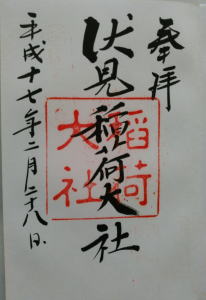 奉拝
伏見稲荷大社
稲荷
大社
平成十七年二月二十八日